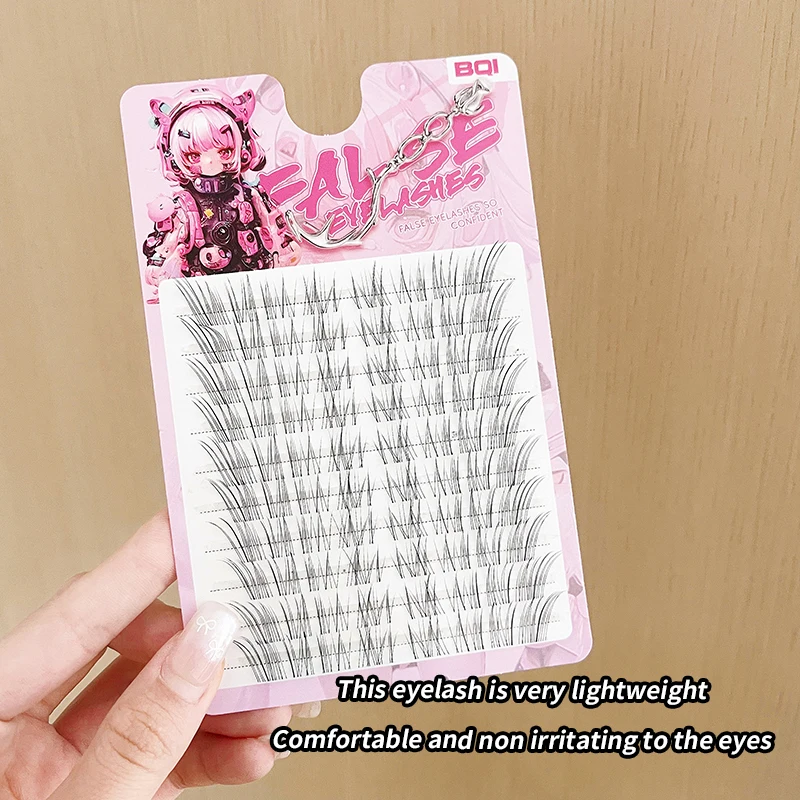 BQI
FALSE
EYELASHES
FALSE EYELASHES SO
CONFIDENT
This eyelash is very lightweight
Comfortable and non irritating to the eyes